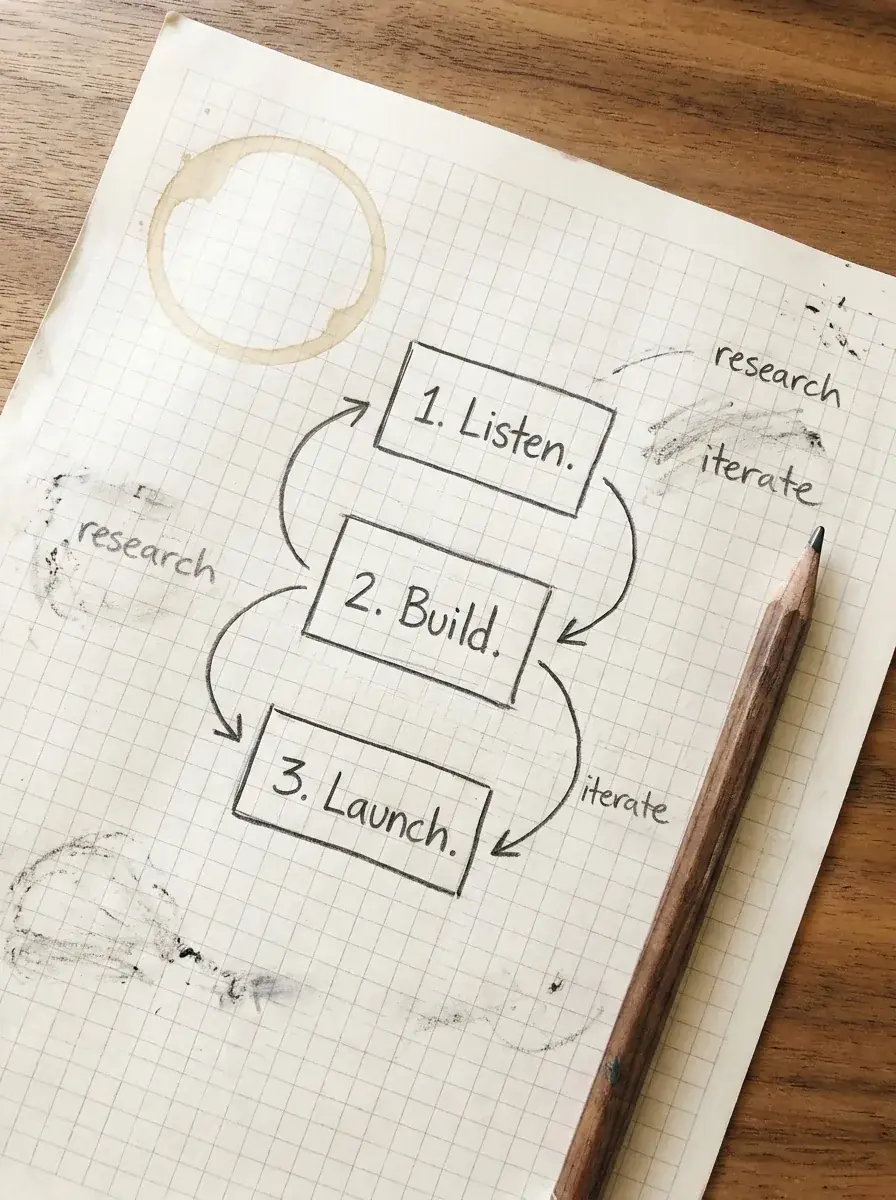 1. Listen.
research
iterate
research
2. Build.
3. Launch.
iterate